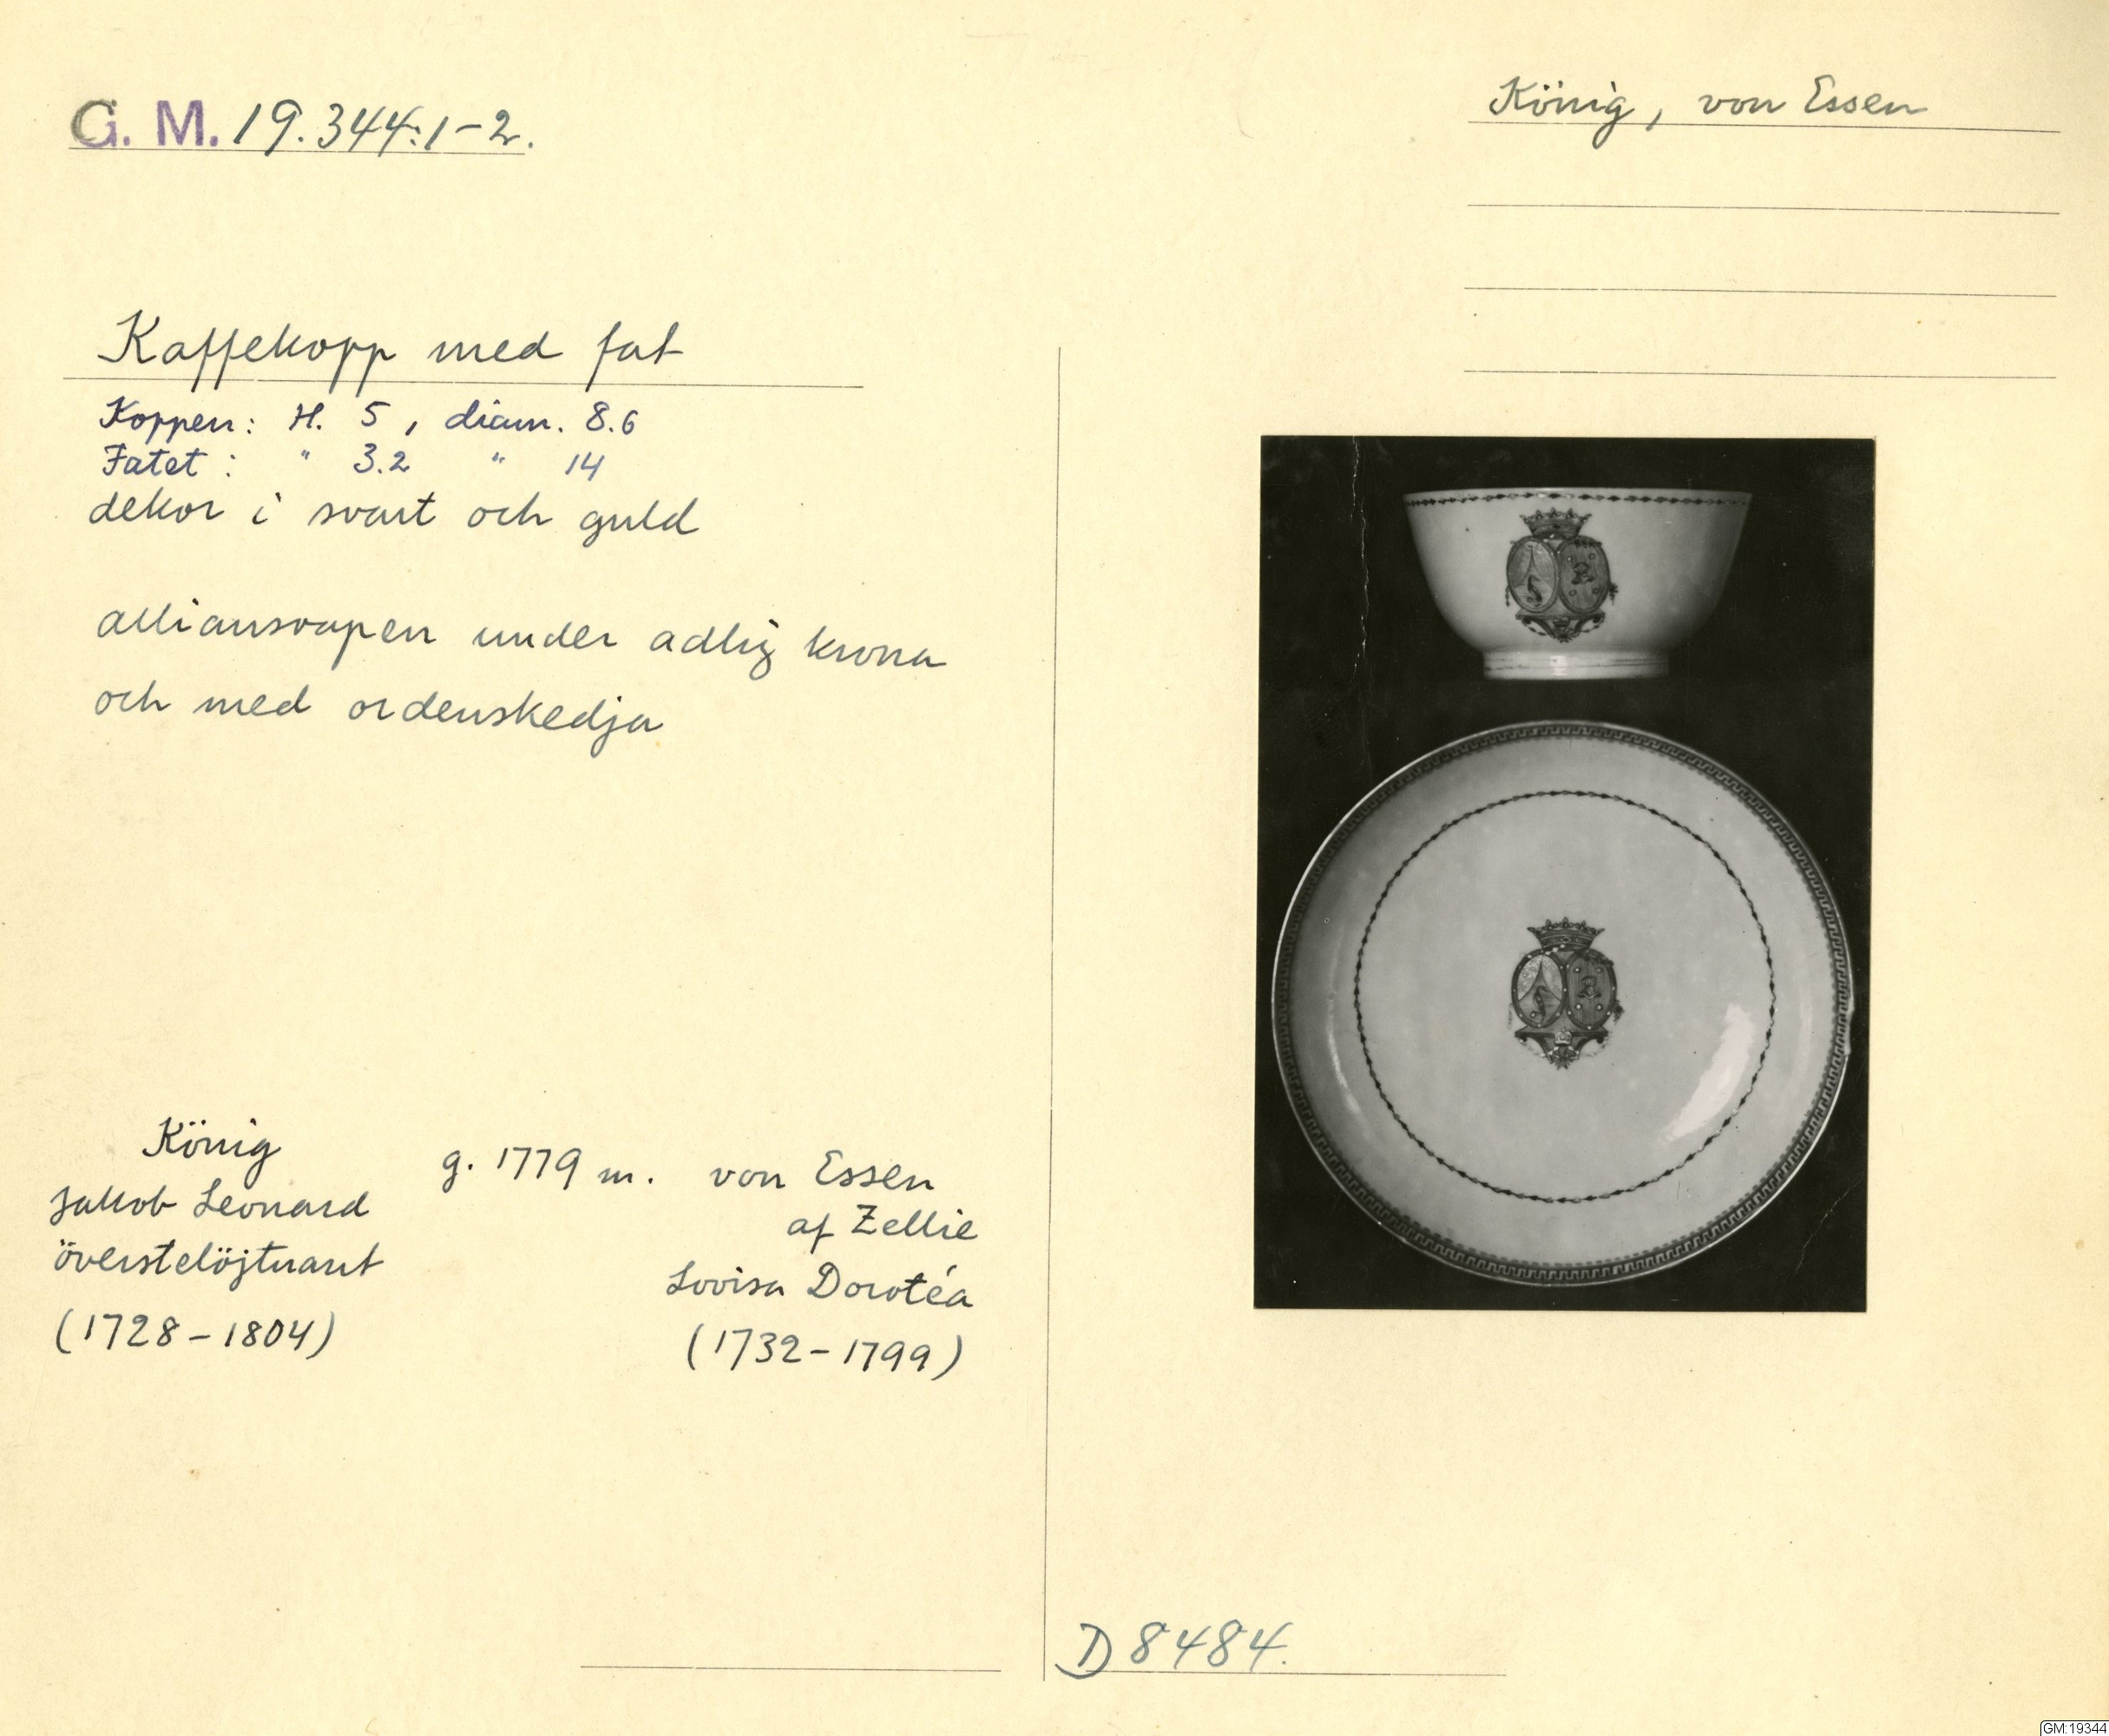 G. M. 19.344:1-2.
König, von Essen
Kaffekopp med fat
Koppen: H. 5, diam. 8.6
Fatet: " 3.2 " 14
dekor i svart och guld
alliansvapen under adlig krona
och med ordenskedja
König
Jakob Leonard
överstelöjtnant
(1728-1804)
g. 1779 m.
von Essen
af Zellie
Lovisa Dorotéa
(1732-1799)
D 8484.
GM:19344